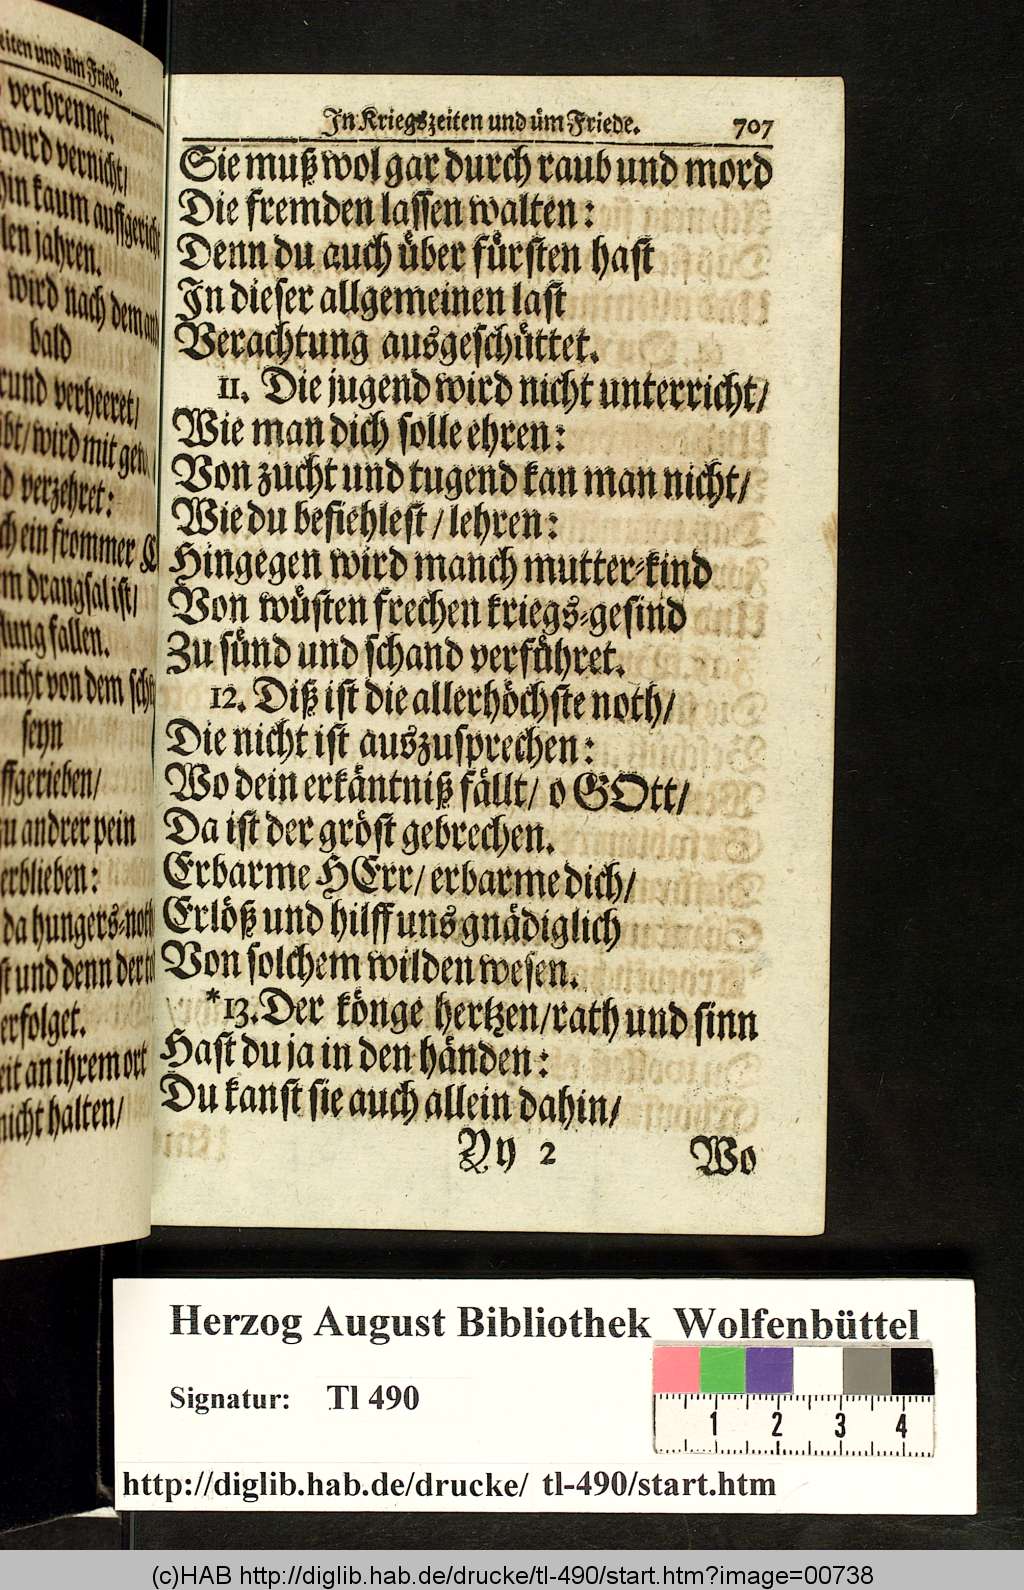 eiten und üm Friede.
verbrennet.
wird vernicht/
hin kaum auffgericht
len jahren.
wird nach dem
bald
rund verheeret/
ibt/ wird mit
d verzehret:
ch ein frommer
m drangsal ist/
tung fallen.
nicht von dem
seyn
ffgerieben/
zu andrer pein
erblieben:
da hungers-noth
st und denn der
erfolget.
eit an ihrem ort
nicht halten/
In Kriegszeiten und üm Friede. 707
Sie muß wol gar durch raub und mord
Die fremden lassen walten:
Denn du auch über fürsten hast
In dieser allgemeinen last
Verachtung ausgeschüttet.
11. Die jugend wird nicht unterricht/
Wie man dich solle ehren:
Von zucht und tugend kan man nicht/
Wie du befiehlest / lehren:
Hingegen wird manch mutter-kind
Von wüsten frechen kriegs-gesind
Zu sünd und schand verführet.
12. Diß ist die allerhöchste noth/
Die nicht ist auszusprechen:
Wo dein erkäntniß fällt/ o GOtt/
Da ist der gröst gebrechen.
Erbarme HErr/ erbarme dich/
Erlöß und hilff uns gnädiglich
Von solchem wilden wesen.
*13. Der könge hertzen/rath und sinn
Hast du ja in den händen:
Du kanst sie auch allein dahin/
Yy 2 Wo
Herzog August Bibliothek Wolfenbüttel
Signatur: Tl 490
1 2 3 4
http://diglib.hab.de/drucke/ tl-490/start.htm
(c)HAB http://diglib.hab.de/drucke/tl-490/start.htm?image=00738